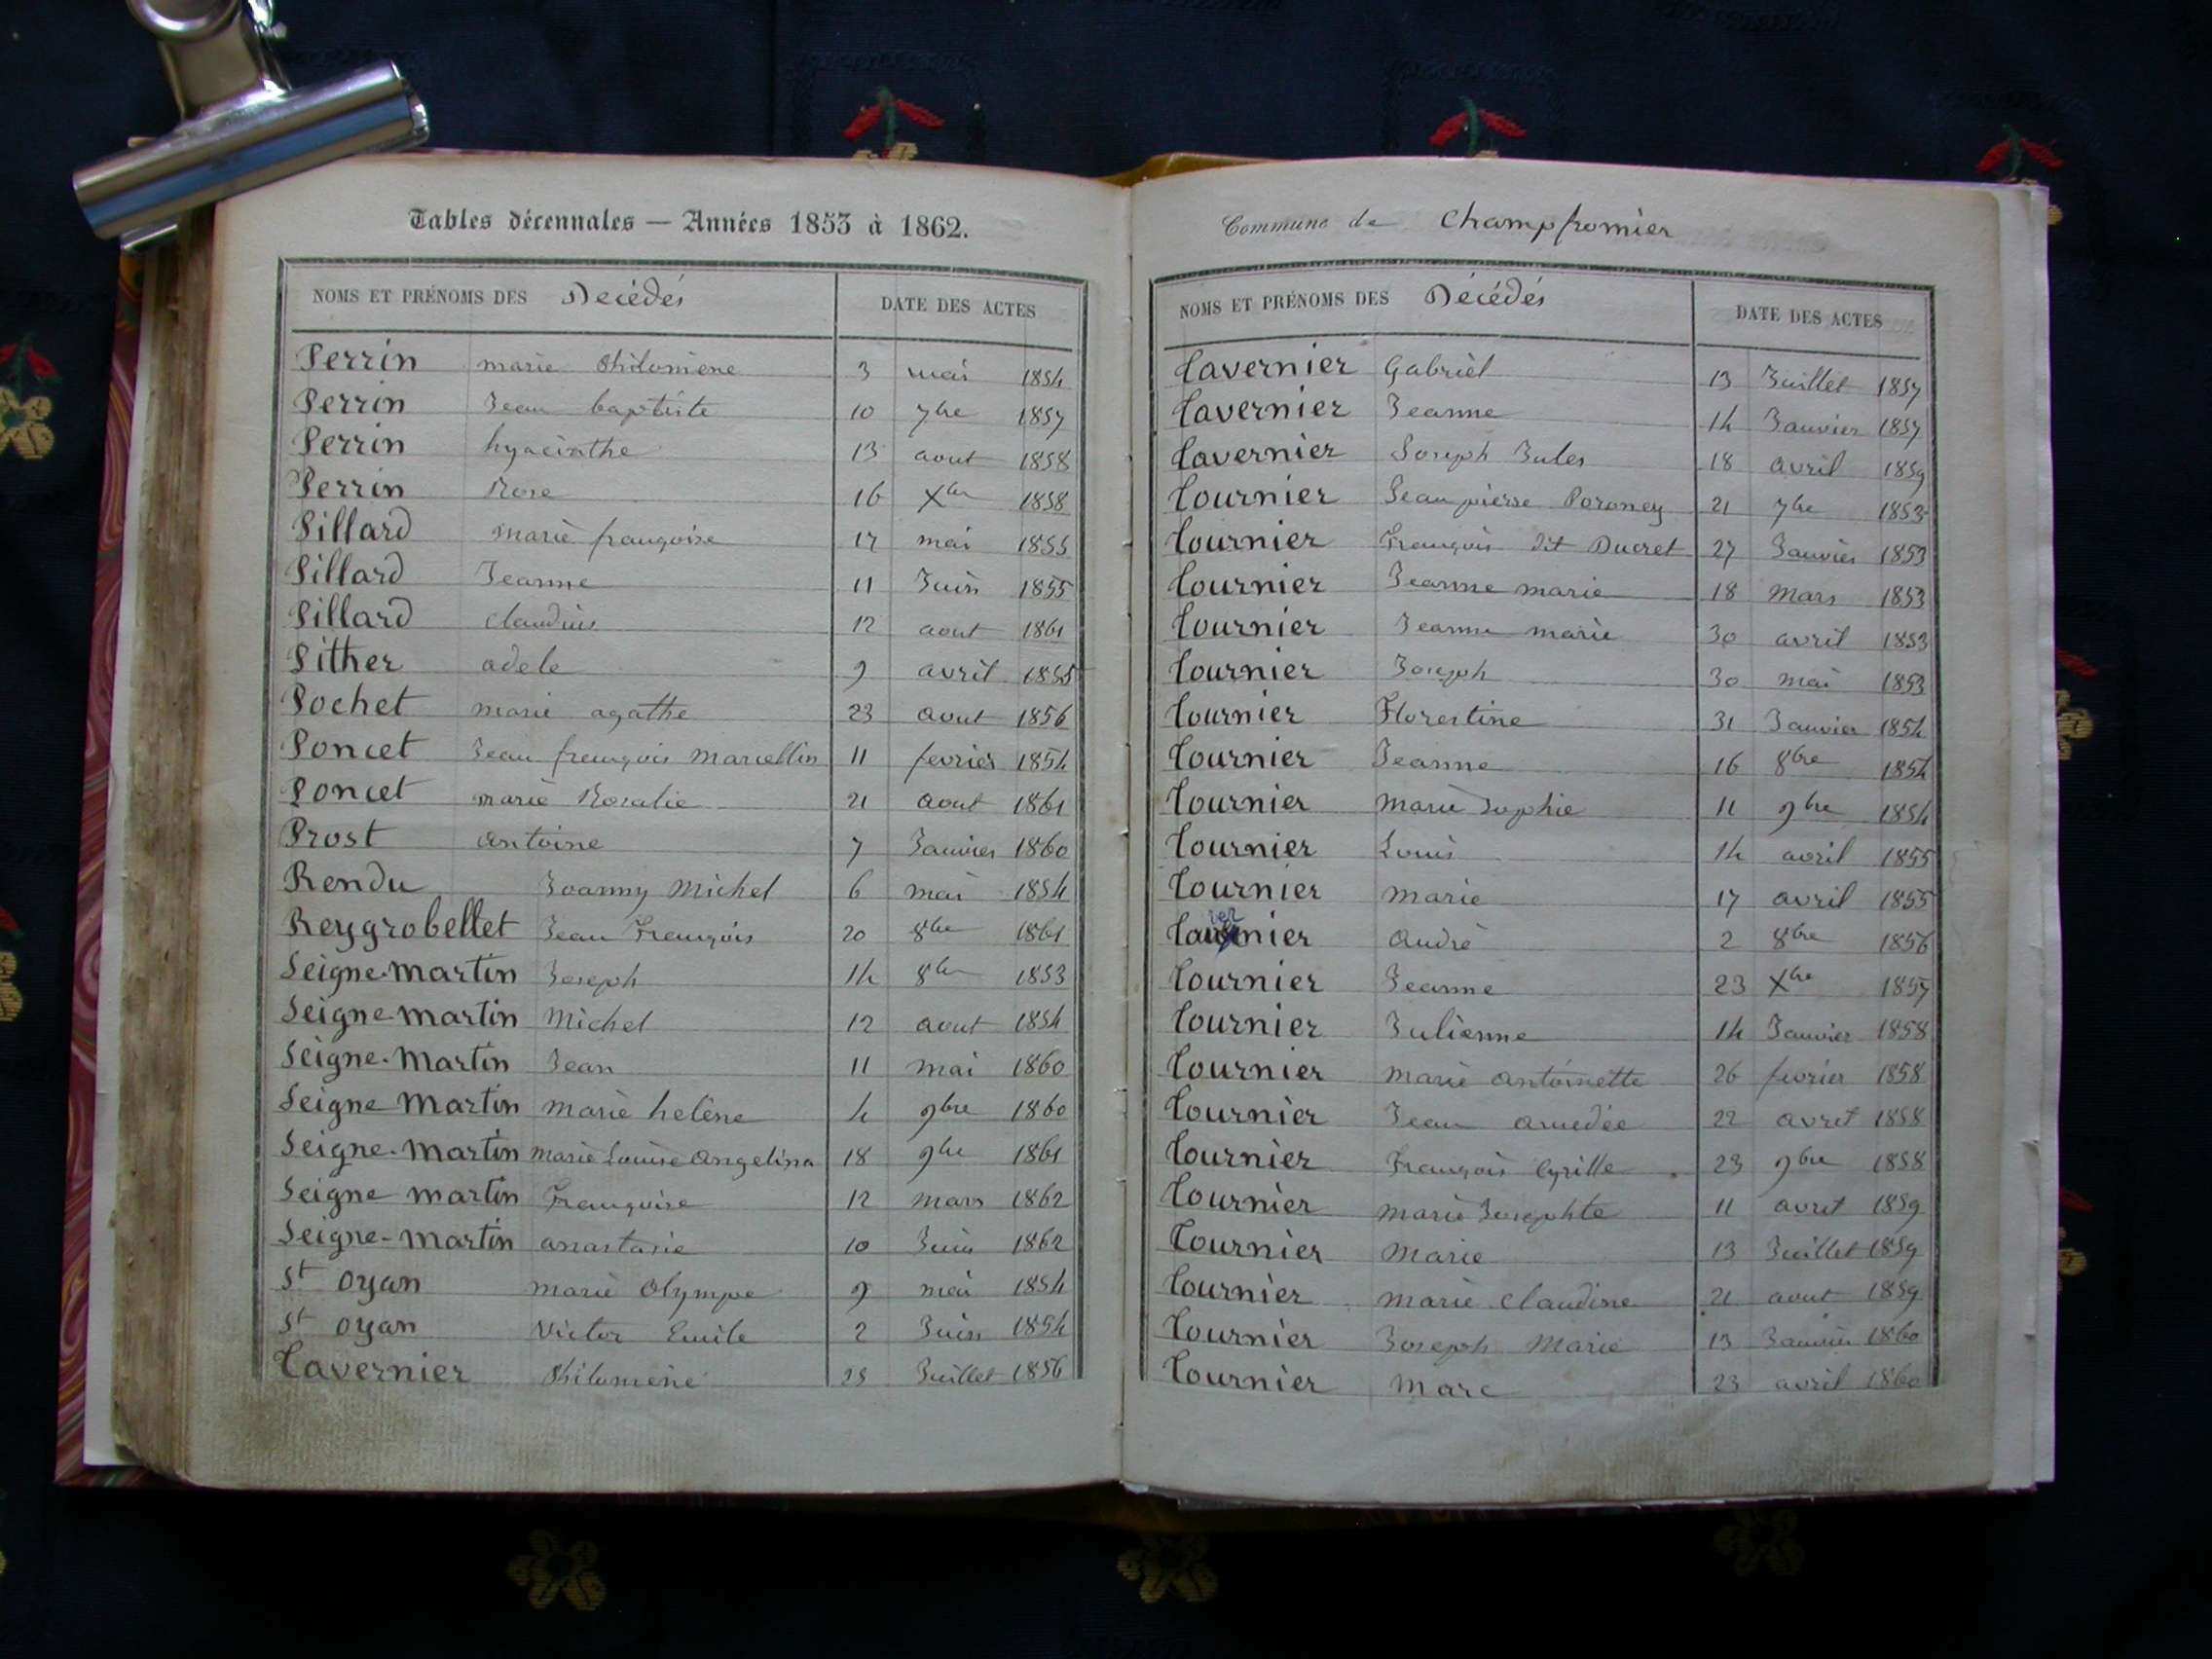 Tables décennales — Années 1853 à 1862.
NOMS ET PRÉNOMS DES Décédés DATE DES ACTES
Perrin marie Philomène 3 mai 1854
Perrin Jean baptiste 10 7bre 1857
Perrin hyacinthe 13 aout 1858
Perrin Rose 16 Xbre 1858
Pillard marie françoise 17 mai 1855
Pillard Jeanne 11 Juin 1855
Pillard claudius 12 aout 1861
Pither adele 9 avril 1855
Pochet marie agathe 23 aout 1856
Poncet Jean françois Marcellin 11 fevrier 1854
Poncet marie Rosalie 21 aout 1861
Prost antoine 7 Janvier 1860
Rendu Joanny Michel 6 mai 1854
Reygrobellet Jean François 20 8bre 1861
Seigne-martin Joseph 14 8bre 1853
Seigne-martin Michel 12 aout 1854
Seigne-Martin Jean 11 mai 1860
Seigne Martin marie helène 4 9bre 1860
Seigne-Martin marie Louise Angelina 18 9bre 1861
Seigne martin Françoise 12 mars 1862
Seigne-martin anastasie 10 Juin 1862
St oyan marie Olympe 9 mai 1854
St oyan Victor Emile 2 Juin 1854
Tavernier Philomène 25 Juillet 1856
Commune de Champfromier
NOMS ET PRÉNOMS DES Décédés DATE DES ACTES
Tavernier Gabriel 13 Juillet 1857
Tavernier Jeanne 14 Janvier 1857
Tavernier Joseph Jules 18 avril 1859
Tournier Jean pierre Poroney 21 7bre 1853
Tournier François dit Ducret 27 Janvier 1853
Tournier Jeanne marie 18 mars 1853
Tournier Jeanne marie 30 avril 1853
Tournier Joseph 30 mai 1853
Tournier Florentine 31 Janvier 1854
Tournier Jeanne 16 8bre 1854
Tournier marie Sophie 11 9bre 1854
Tournier Louis 14 avril 1855
Tournier marie 17 avril 1855
Tavernier André 2 8bre 1856
Tournier Jeanne 23 Xbre 1857
Tournier Julienne 14 Janvier 1858
Tournier marie antoinette 26 fevrier 1858
Tournier Jean amedée 22 avril 1858
Tournier François Cyrille 23 9bre 1858
Tournier marie Josephte 11 avril 1859
Tournier Marie 13 Juillet 1859
Tournier marie claudine 21 aout 1859
Tournier Joseph Marie 13 Janvier 1860
Tournier Marc 23 avril 1860